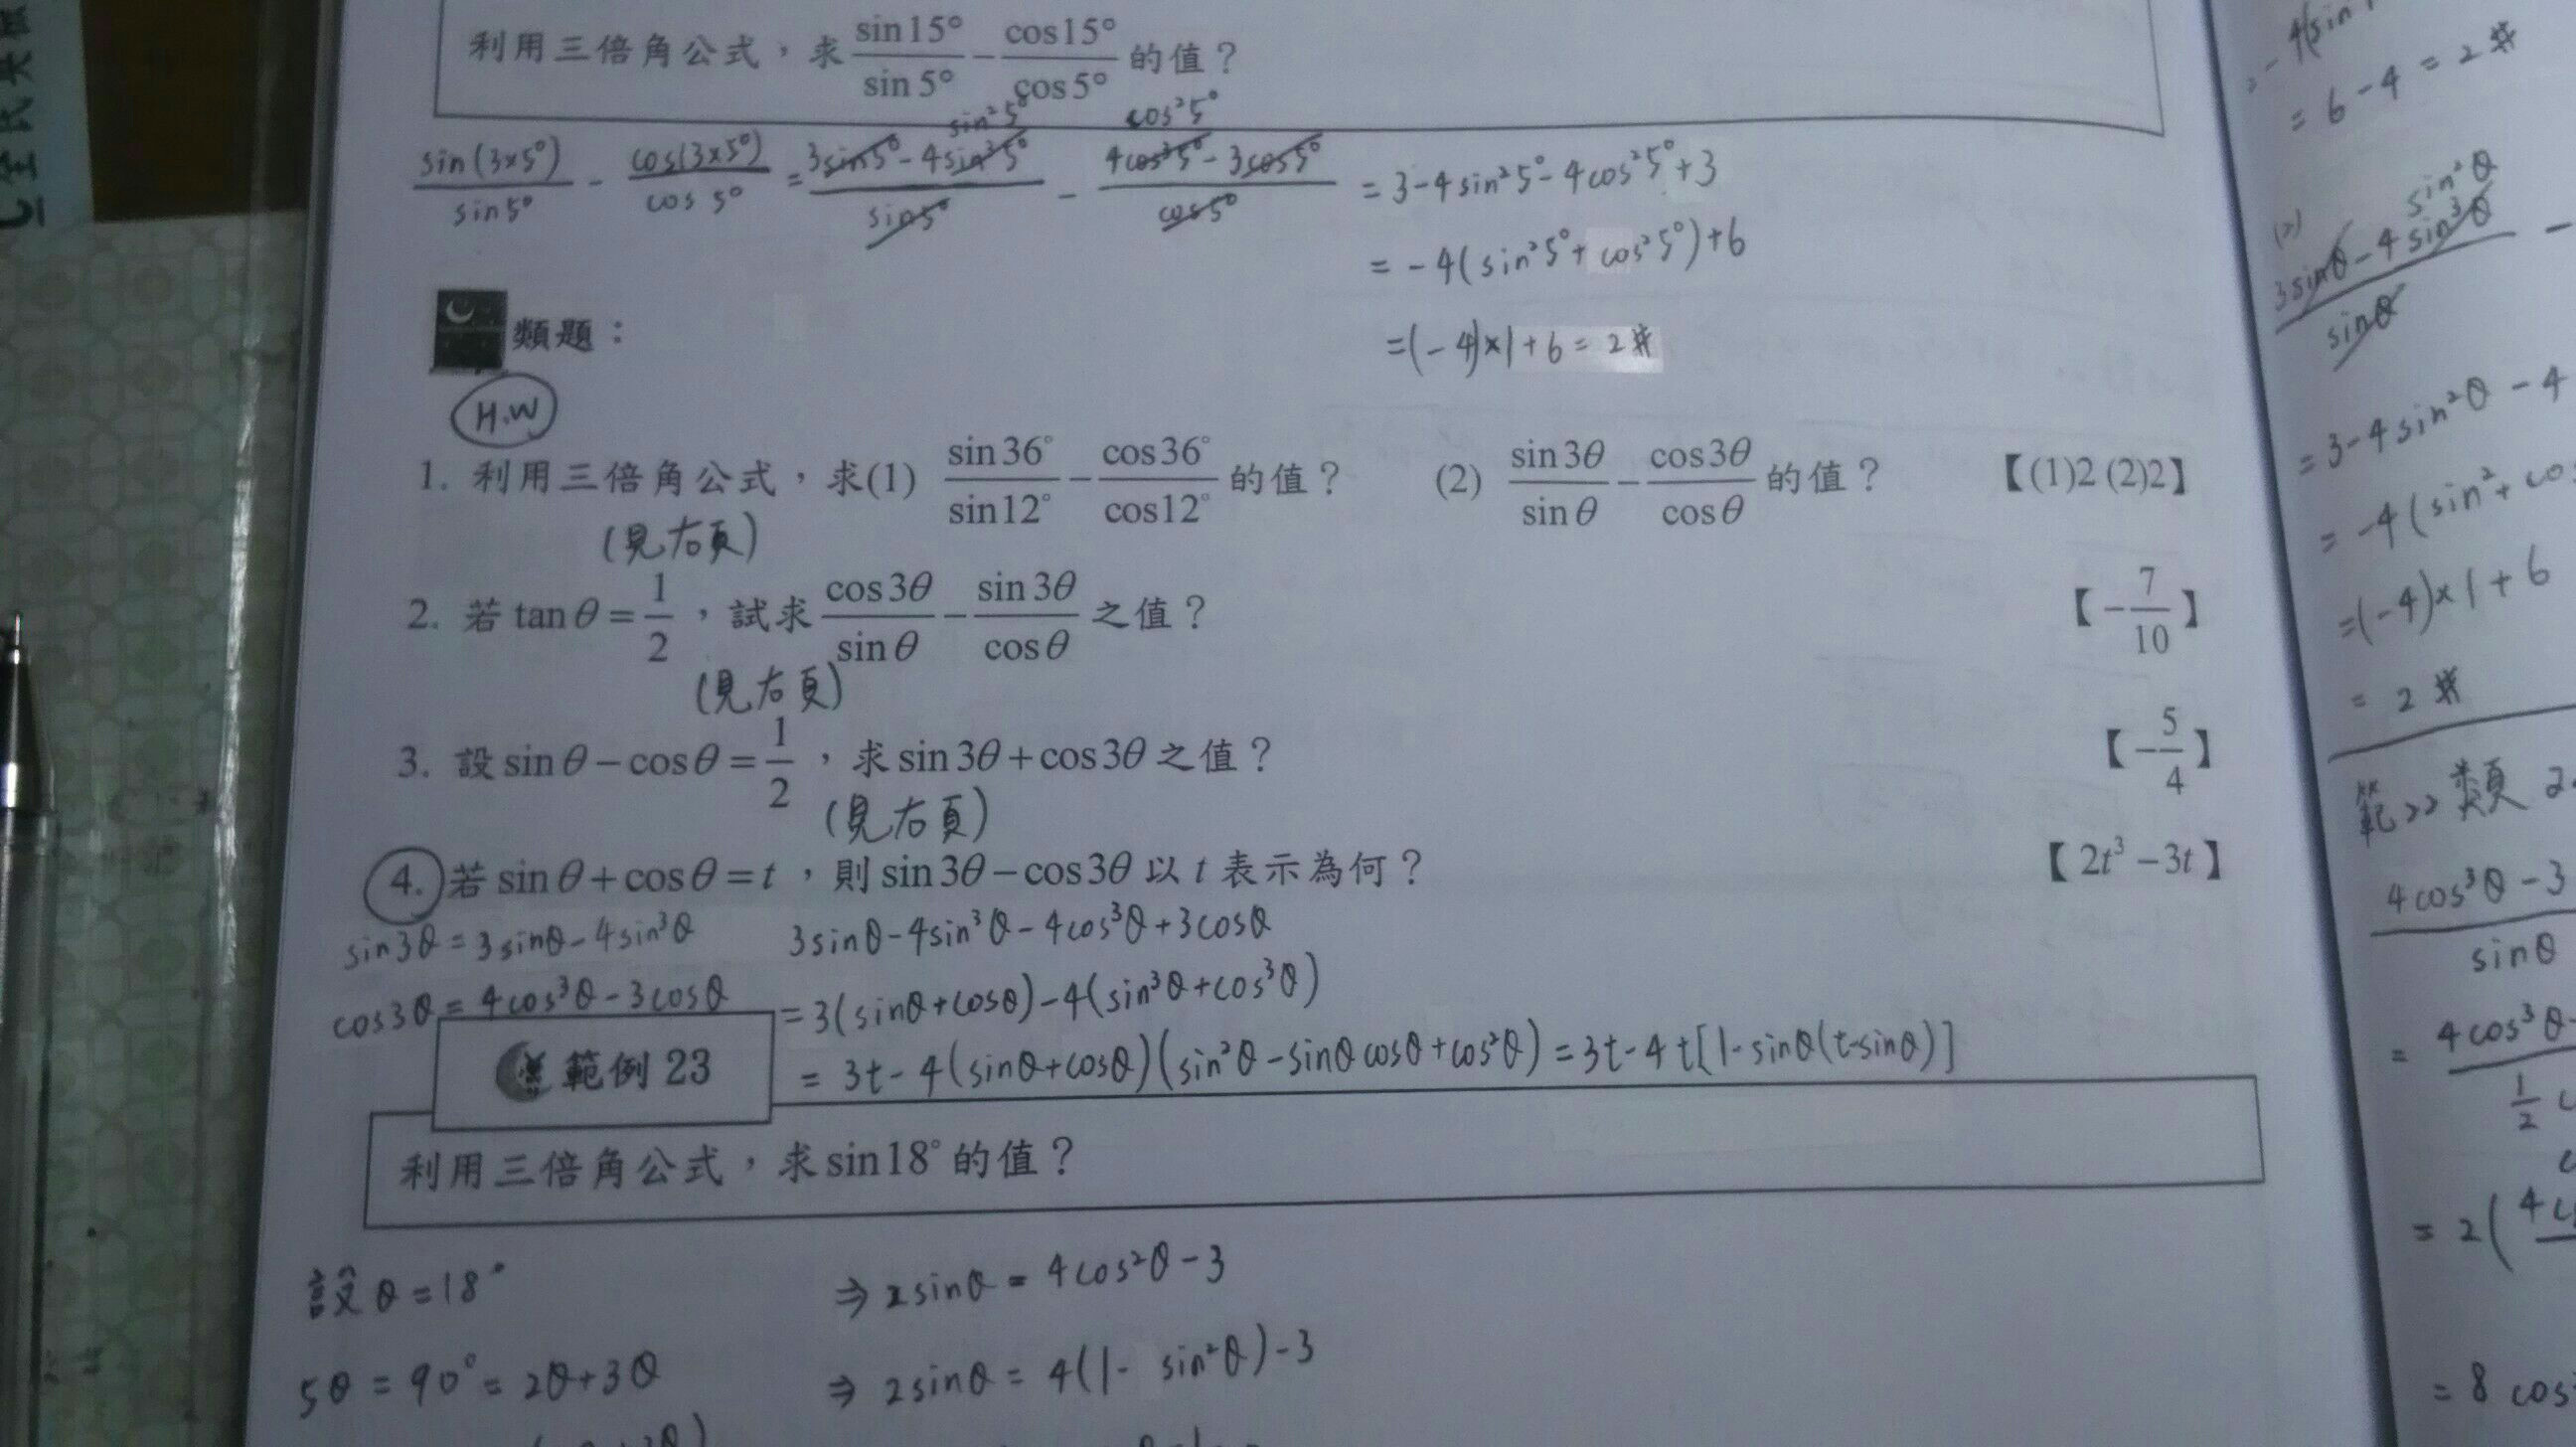 利用三倍角公式，求 sin15°/sin5° − cos15°/cos5° 的值？
sin(3×5°)/sin5° - cos(3×5°)/cos5° = (3sin5° - 4sin³5°)/sin5° - (4cos³5° - 3cos5°)/cos5° = 3-4sin²5°-4cos²5°+3
sin²5° cos²5°
= -4(sin²5°+cos²5°)+6
=(-4)×1+6=2#
類題：
H.W
1. 利用三倍角公式，求(1) sin36°/sin12° − cos36°/cos12° 的值？ (2) sin3θ/sinθ − cos3θ/cosθ 的值？ 【(1)2 (2)2】
(見右頁)
2. 若 tanθ = 1/2，試求 cos3θ/sinθ − sin3θ/cosθ 之值？ 【−7/10】
(見右頁)
3. 設 sinθ − cosθ = 1/2，求 sin3θ + cos3θ 之值？ 【−5/4】
(見右頁)
4. 若 sinθ + cosθ = t，則 sin3θ − cos3θ 以 t 表示為何？ 【2t³ − 3t】
sin3θ = 3sinθ-4sin³θ 3sinθ-4sin³θ-4cos³θ+3cosθ
cos3θ = 4cos³θ-3cosθ =3(sinθ+cosθ)-4(sin³θ+cos³θ)
= 3t-4(sinθ+cosθ)(sin²θ-sinθcosθ+cos²θ) = 3t-4t[1-sinθ(t-sinθ)]
範例 23
利用三倍角公式，求 sin18° 的值？
設 θ=18° ⇒ 2sinθ = 4cos²θ-3
5θ = 90° = 2θ+3θ ⇒ 2sinθ = 4(1- sin²θ)-3
= 6-4 = 2#
(2)
sin²θ
3sinθ-4sin³θ -
sinθ
=3-4sin²θ-4
= -4(sin²+
=(-4)×1+6
= 2#
範22 類
4cos³θ-3
sinθ
= 4cos³θ
1/2
= 2(
= 8 cos